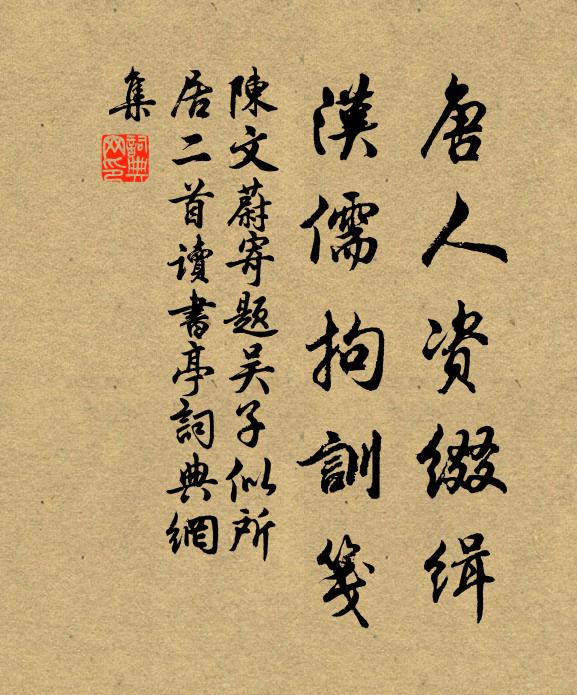 唐人资缀缉
漢儒拘訓箋
陳文蔚寄题吴子似所
居二首讀書亭詞典網
集
詞典網印